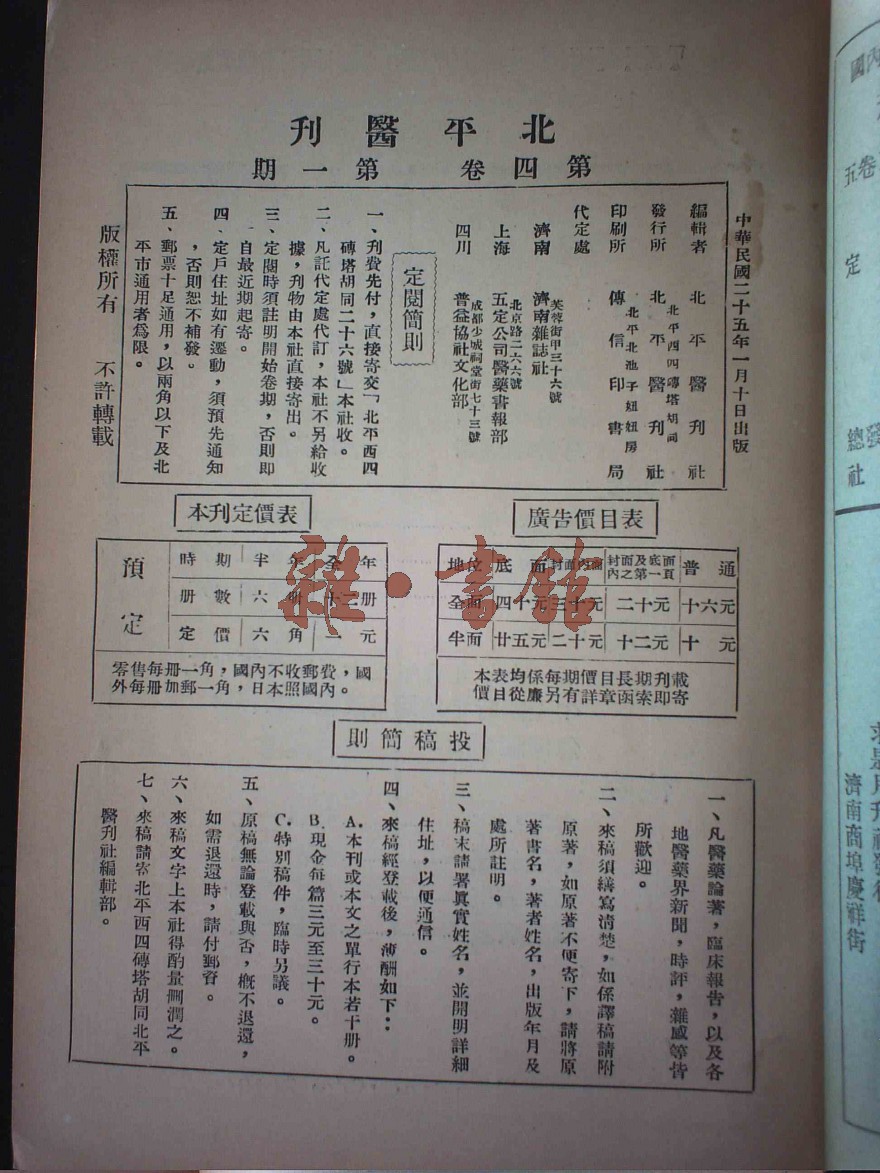 北平醫刊
第四卷 第一期
中華民國二十五年一月十日出版
編輯者 北平醫刊社
北平西四磚塔胡同
發行所 北平醫刊社
北平北池子妞妞房
印刷所 傳信印書局
代定處
芙蓉街甲三十六號
濟南 濟南雜誌社
北京路二六六號
上海 五定公司醫藥書報部
成都少城祠堂街七十三號
四川 普益協社文化部
定閱簡則
一、刊費先付，直接寄交「北平西四
磚塔胡同二十六號」本社收。
二、凡託代定處代訂，本社不另給收
據，刊物由本社直接寄出。
三、定閱時須註明開始卷期，否則即
自最近期起寄。
四、定戶住址如有遷動，須預先通知
，否則恕不補發。
五、郵票十足通用，以兩角以下及北
平市通用者爲限。
版權所有 不許轉載
廣告價目表
地位 底面 封面內面 封面及底面內之第一頁 普通
全面 四十元 三十元 二十元 十六元
半面 廿五元 二十元 十二元 十元
本表均係每期價目長期刊載
價目從廉另有詳章函索即寄
本刊定價表
預定
時期 半年 全年
册數 六册 十二册
定價 六角 一元
零售每册一角，國內不收郵費，國
外每册加郵一角，日本照國內。
雜·書館
投稿簡則
一、凡醫藥論著，臨床報告，以及各
地醫藥界新聞，時評，雜感等皆
所歡迎。
二、來稿須繕寫清楚，如係譯稿請附
原著，如原著不便寄下，請將原
著書名，著者姓名，出版年月及
處所註明。
三、稿末請署眞實姓名，並開明詳細
住址，以便通信。
四、來稿經登載後，薄酬如下：
A.本刊或本文之單行本若干册。
B.現金每篇三元至三十元。
C.特別稿件，臨時另議。
五、原稿無論登載與否，概不退還，
如需退還時，請付郵資。
六、來稿文字上本社得酌量刪潤之。
七、來稿請寄北平西四磚塔胡同北平
醫刊社編輯部。
國內
五卷
定
總發
社
濟南商埠慶祥街